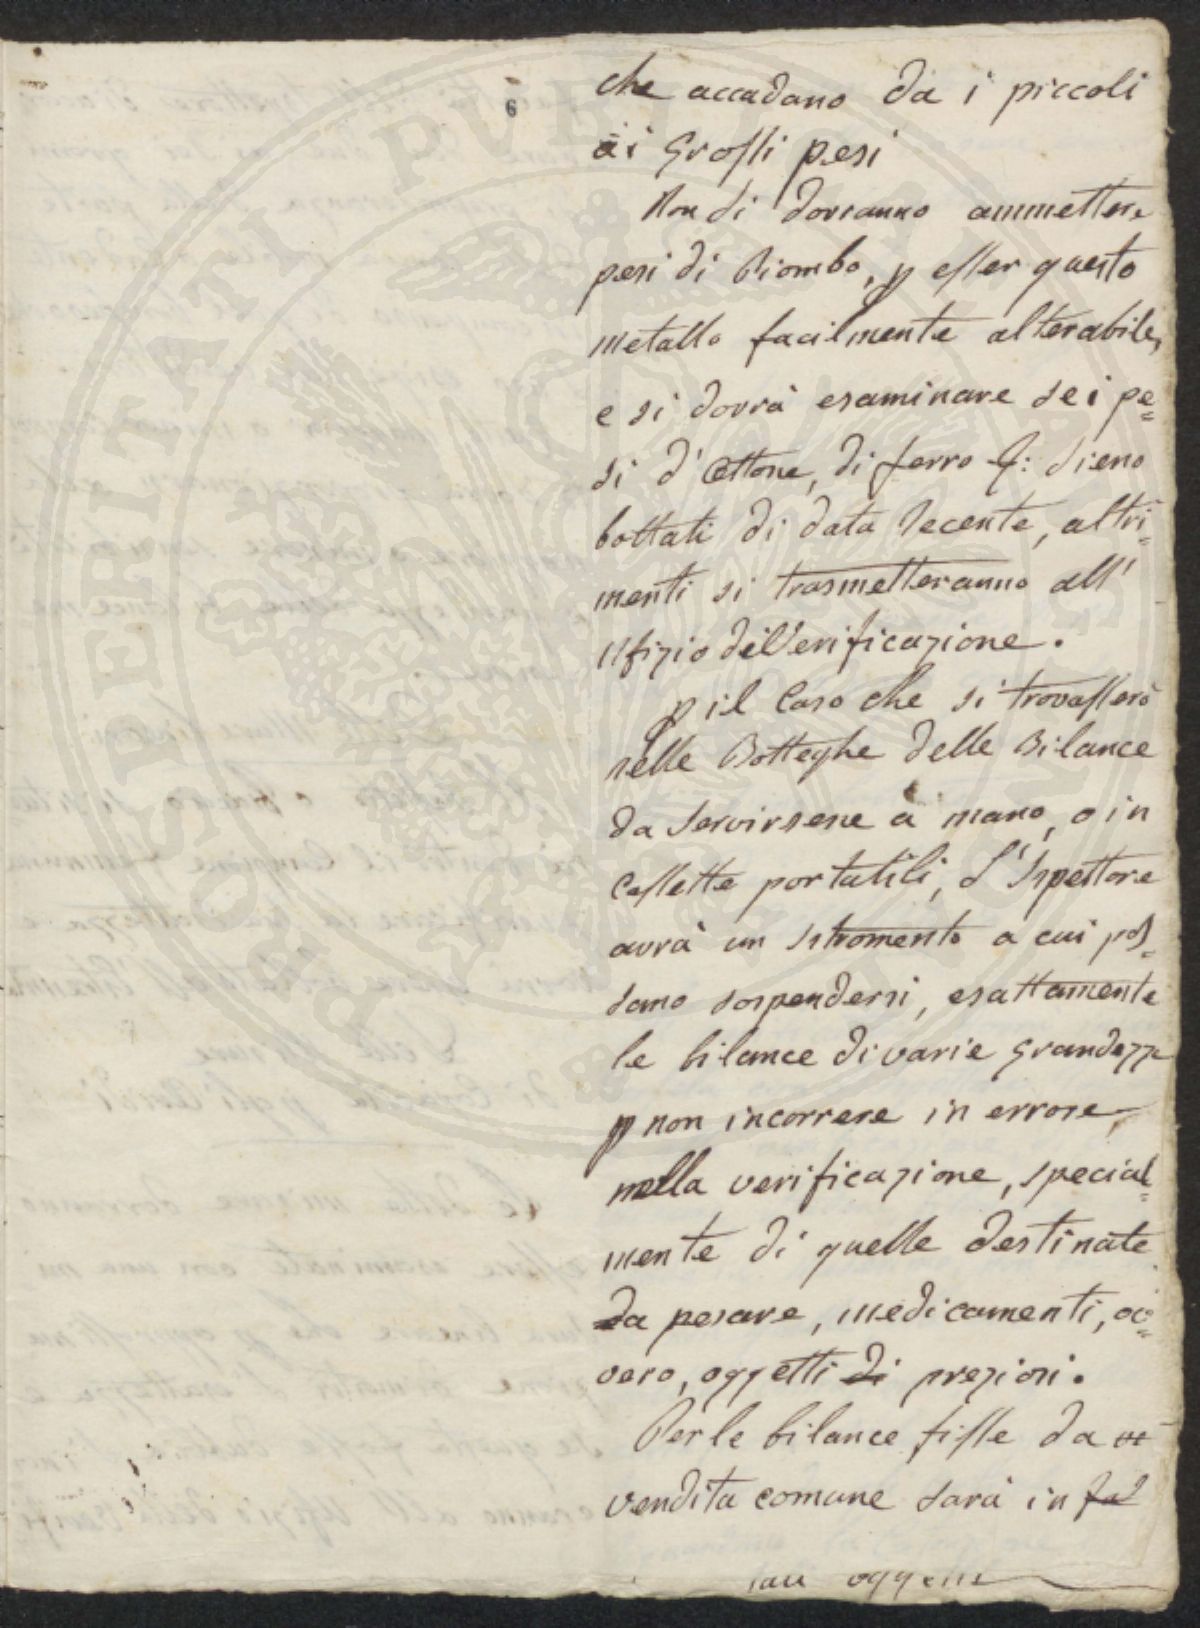 6
che accadano da i piccoli
ai Grossi pesi
Non si dovranno ammettere
pesi di Piombo, p esser questo
metallo facilmente alterabile,
e si dovrà esaminare se i pe=
si d'Ottone, di ferro &: sieno
bottati di data recente, altri=
menti si trasmetteranno all'
Ufizio di Verificazione.
p il Caso che si trovassero
nelle Botteghe delle Bilance
da servirsene a mano, o in
Cassette portatili, L'Ispettore
avrà un istromento a cui pos=
sano sospendersi, esattamente
le bilance di varie Grandezze
p non incorrere in errore,
nella verificazione, special=
mente di quelle destinate
da pesare, medicamenti, ov=
vero, oggetti di preziosi.
Per le bilance fisse da ve
vendita comune sarà in fa
tali oggetti
PROSPERITATI PVBLICAE